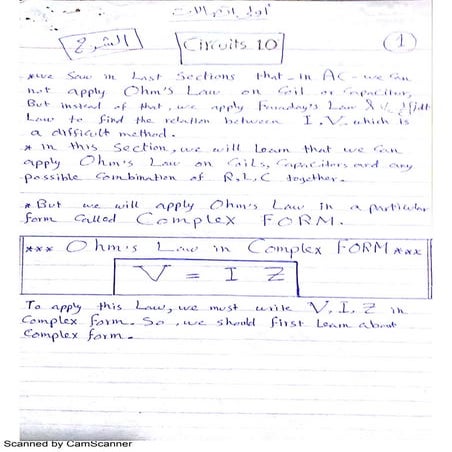 أولى اتصالات
الشرح
Circuits 10
(1)
* we saw in Last Sections that in AC we can
not apply Ohm's Law on Coil or Capacitor,
But instead of that, we apply Faraday's Law & ∫idt
Law to find the relation between I, V. which is
a difficult method.
* in this Section, we will Learn that we can
apply Ohm's Law on Coils, Capacitors and any
possible Combination of R, L, C together.
* But we will apply Ohm's Law in a particular
form called Complex FORM.
*** Ohm's Law in Complex FORM ***
V = I Z
To apply this Law, we must write V, I, Z in
Complex form. So, we should first Learn about
Complex form.
Scanned by CamScanner